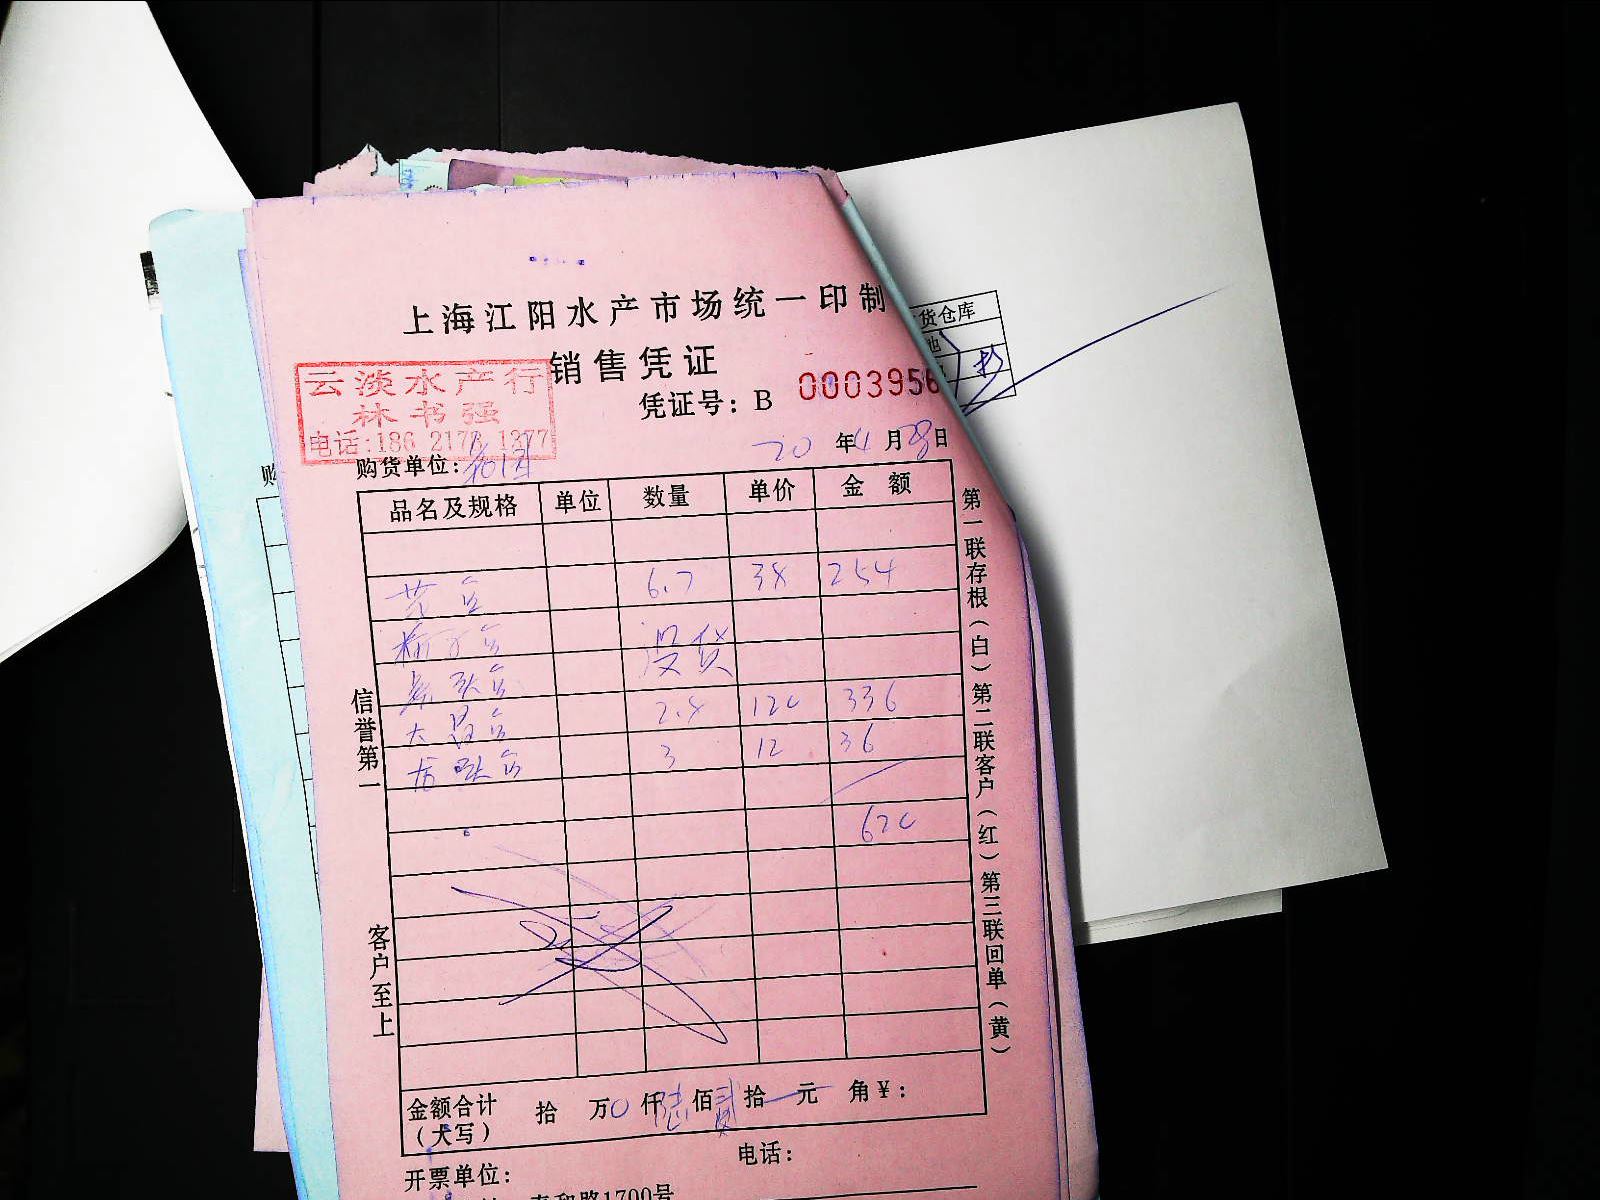 上海江阳水产市场统一印制
销售凭证
云淡水产行
林书强
电话:186 2173 1377
凭证号: B 0003956
20 年4月28日
购货单位:
品名及规格 单位 数量 单价 金额
6.7 38 254
没货
2.8 120 336
3 12 36
620
信誉第一
客户至上
第一联存根(白)第二联客户(红)第三联回单(黄)
金额合计 拾 万0仟陆佰贰拾 元 角¥:
(大写)
开票单位: 电话:
泰和路1700号
货仓库
购